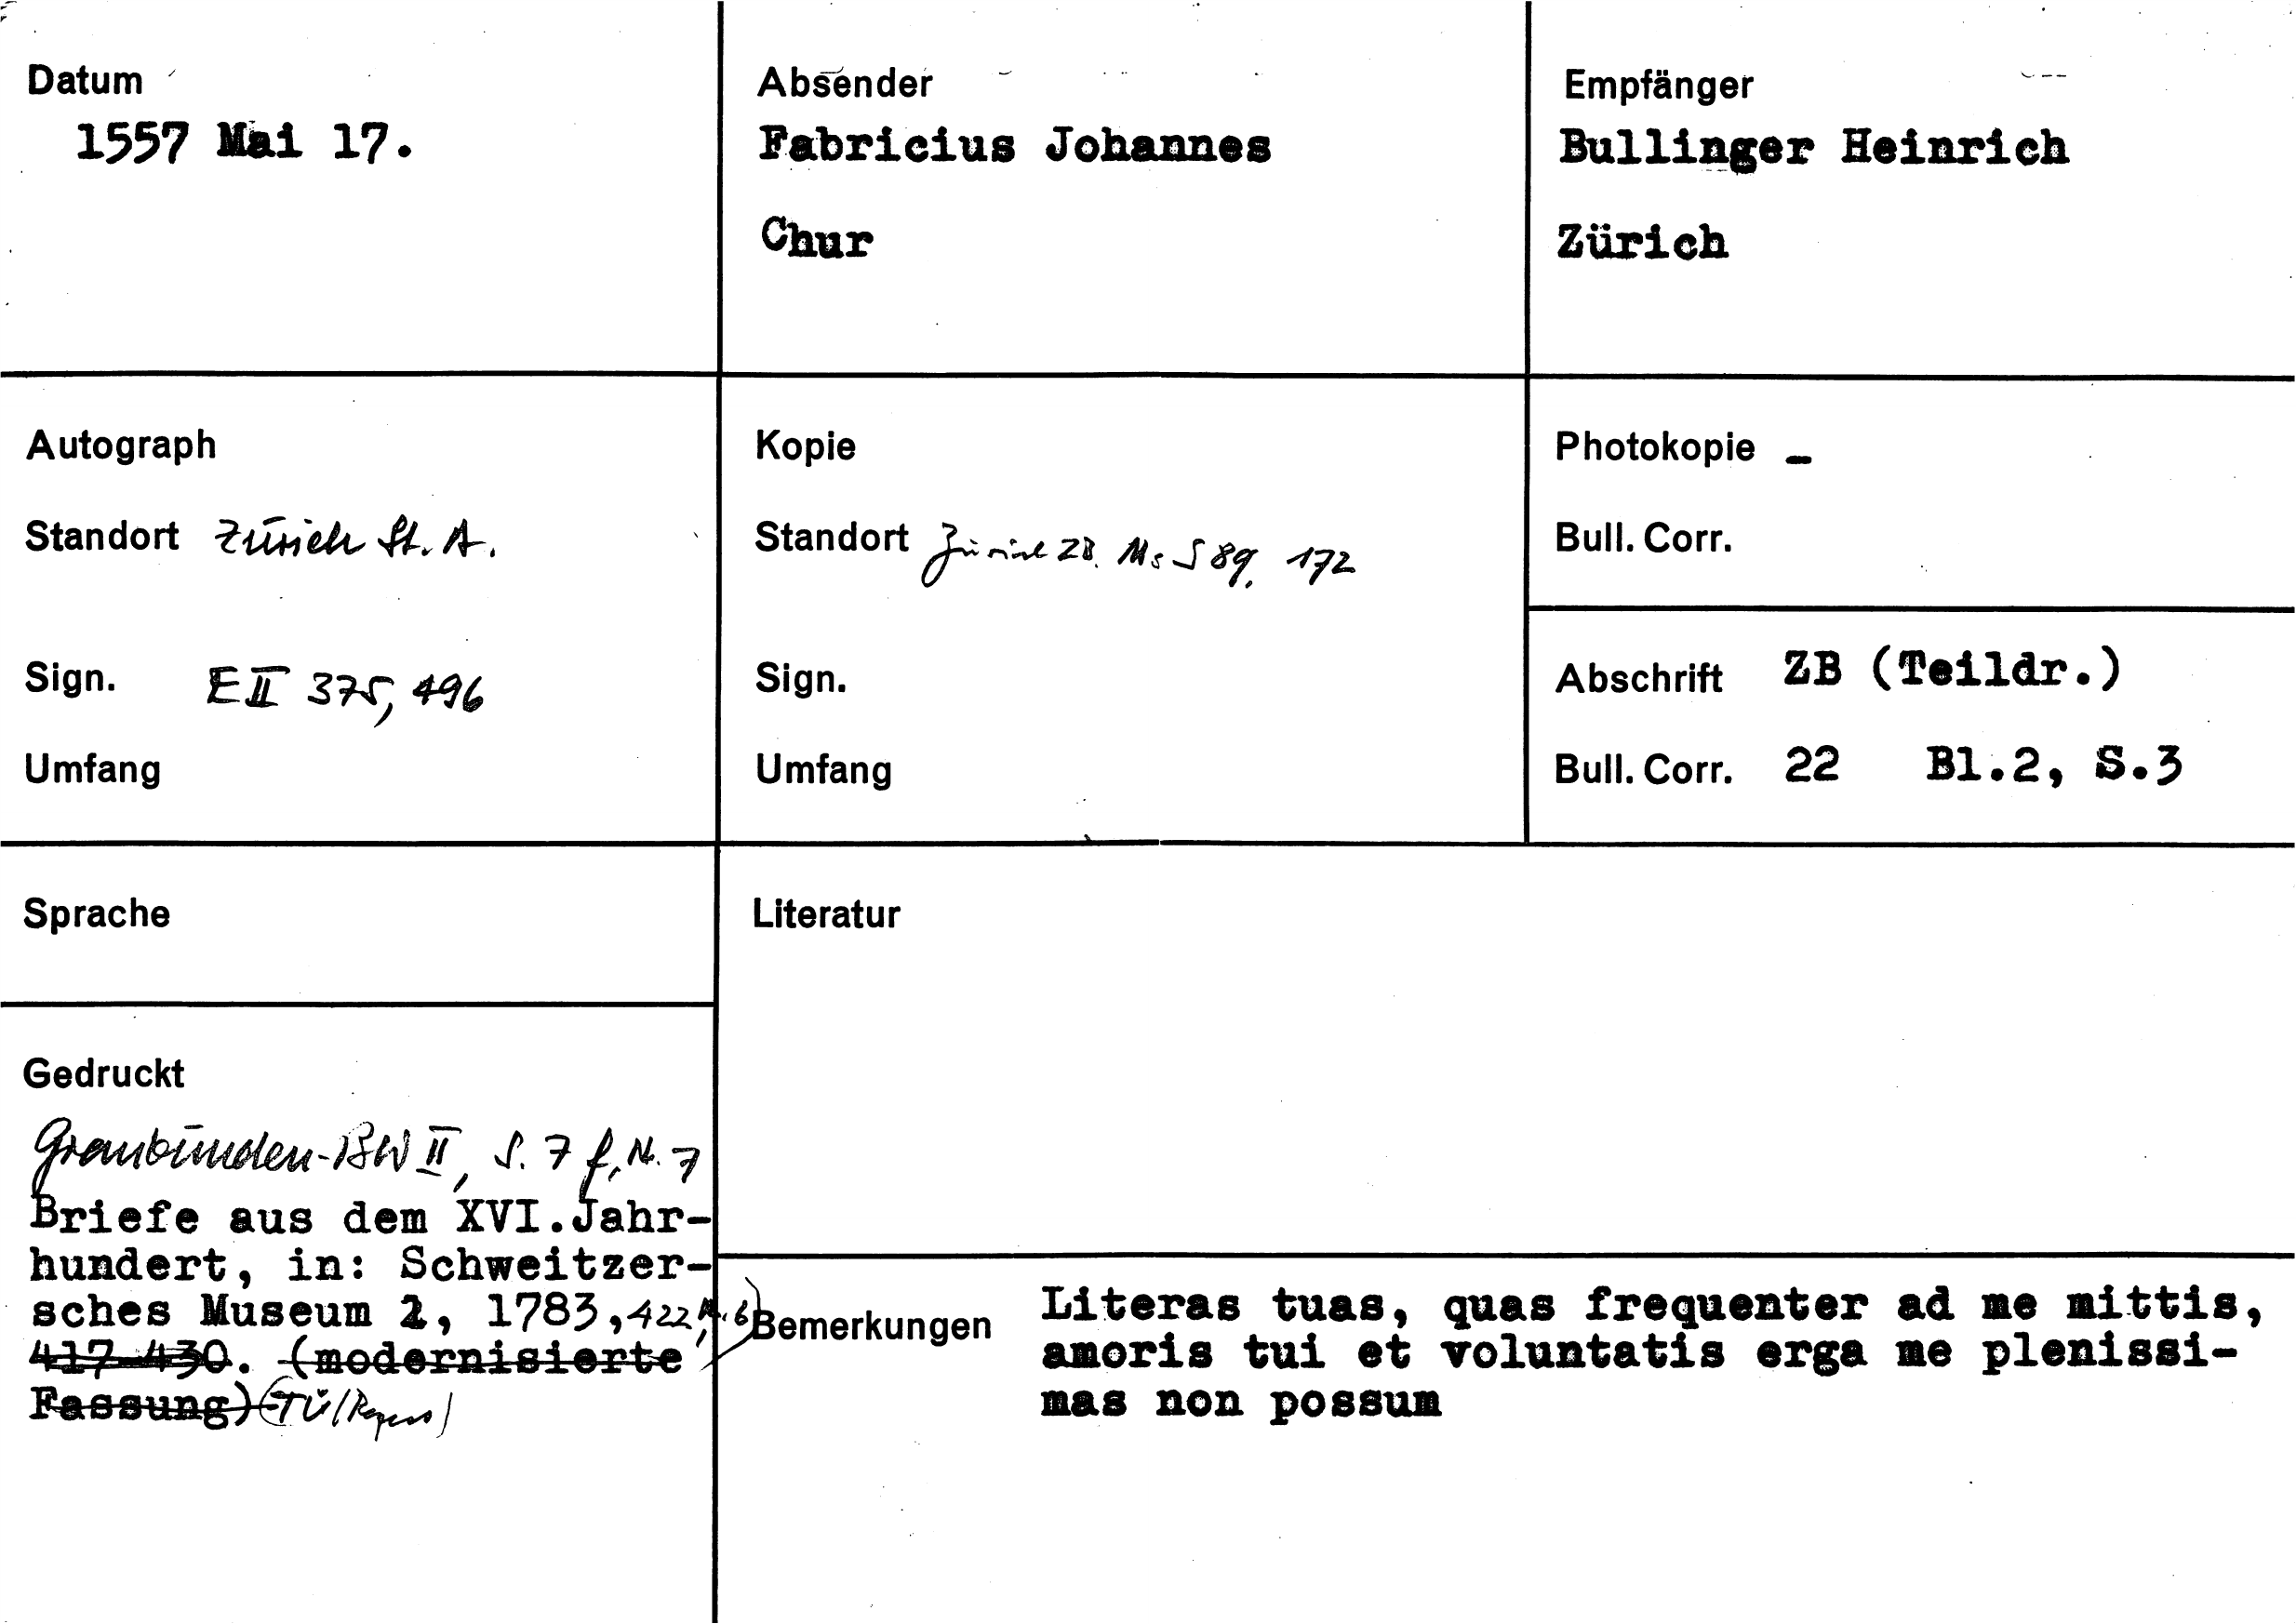 Datum
1557 Mai 17.
Absender
Fabricius Johannes
Chur
Empfänger
Bullinger Heinrich
Zürich
Autograph
Standort Zürich St. A.
Sign. E II 375, 496
Umfang
Kopie
Standort Zürich ZB. Ms S 89, 172
Sign.
Umfang
Photokopie –
Bull. Corr.
Abschrift ZB (Teildr.)
Bull. Corr. 22 Bl.2, S.3
Sprache
Literatur
Gedruckt
Graubünden-BW II, S. 7 f, Nr. 7
Briefe aus dem XVI.Jahr-
hundert, in: Schweitzer-
sches Museum 2, 1783, 422, Nr. 6
417-430. (modernisierte
Fassung) (TÜ/Regest)
Bemerkungen
Literas tuas, quas frequenter ad me mittis,
amoris tui et voluntatis erga me plenissi-
mas non possum